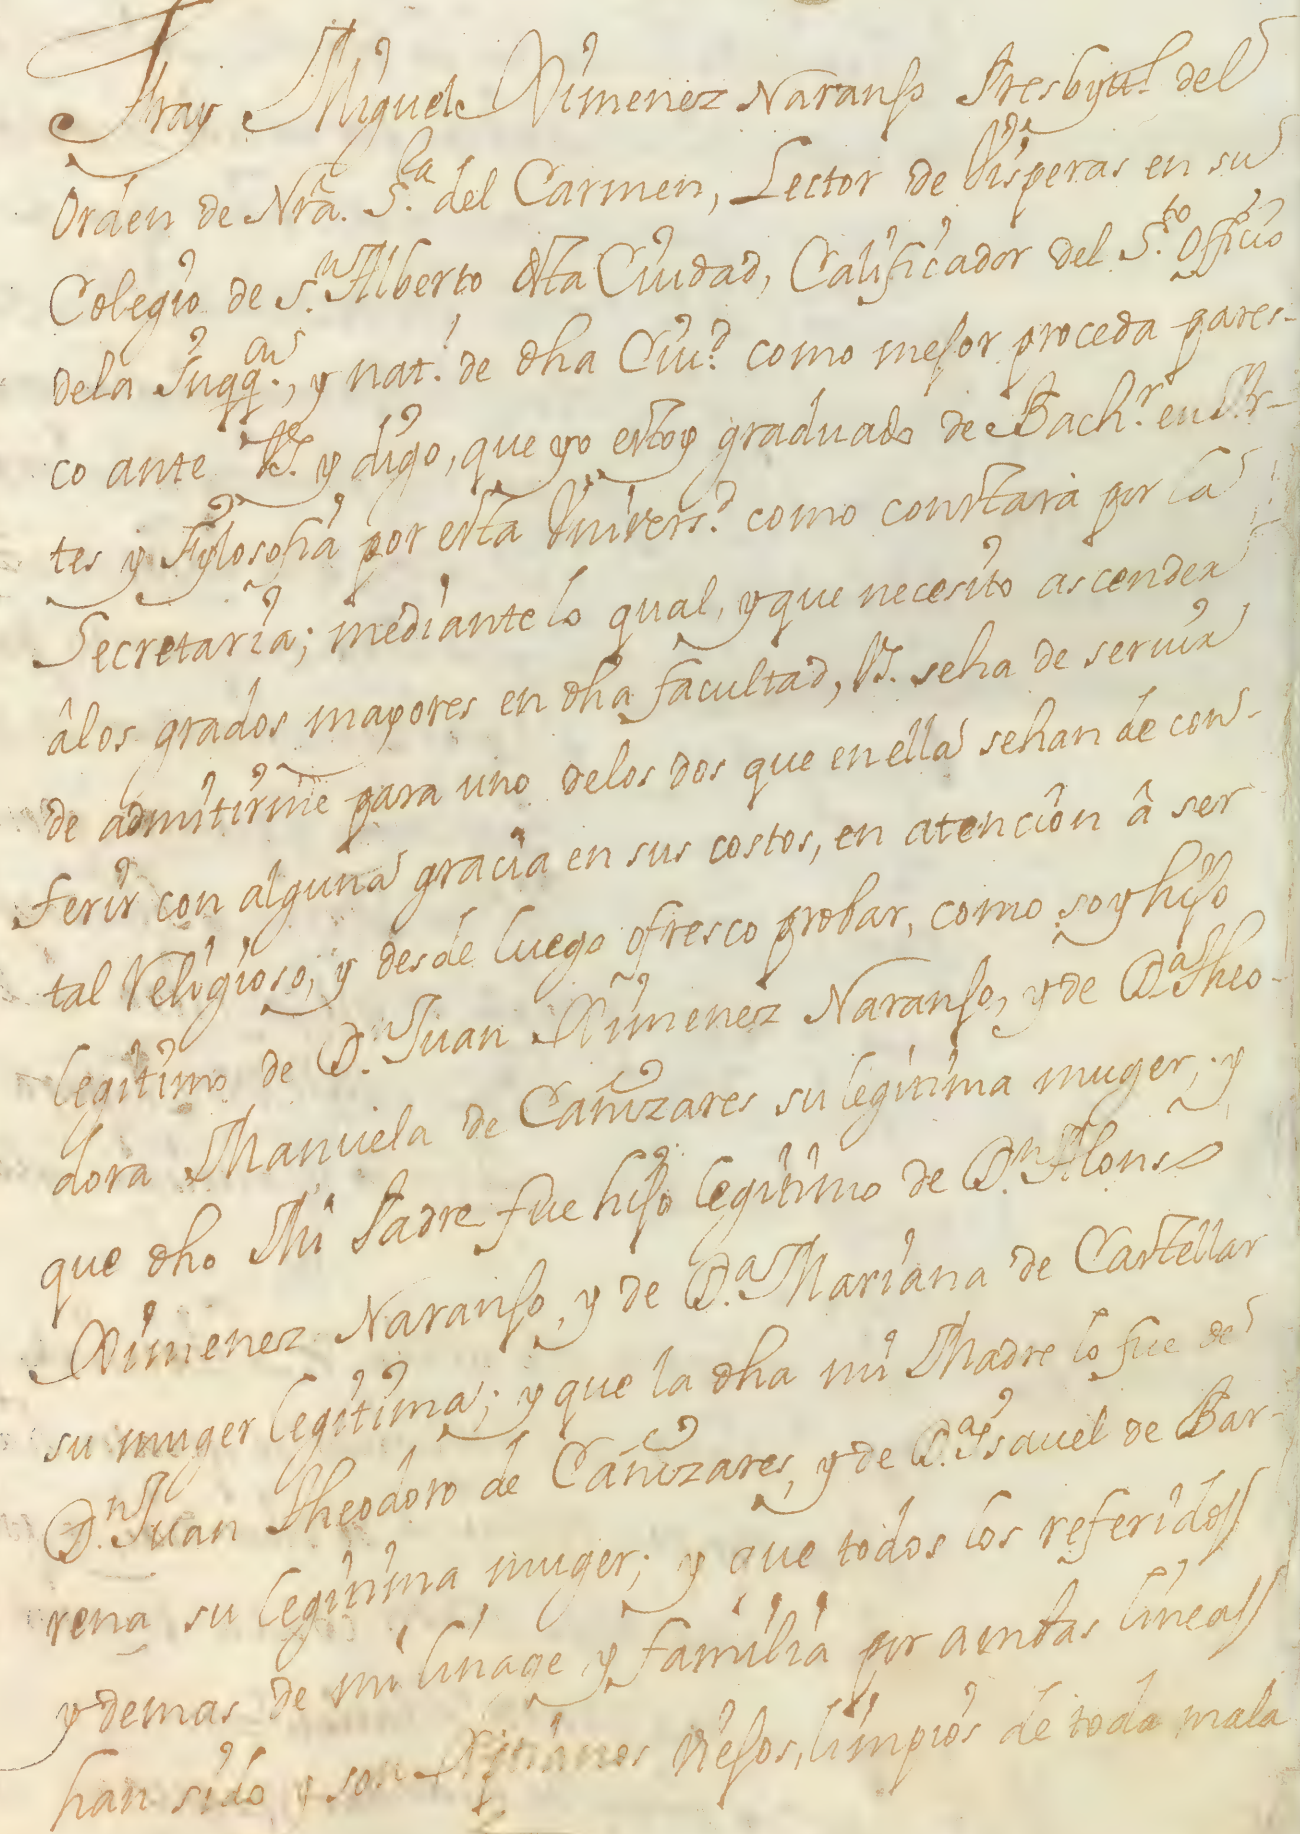 Fray Miguel Ximenez Naranjo Presbyt.o del
Orden de Nrã. S.ra del Carmen, Lector de Visperas en su
Colegio de S.n Alberto desta Ciudad, Calificador del S.to Officio
dela Inqq.on, y nat.l de dha Ciu.d como mejor proceda pares-
co ante VS. y digo, que yo estoy graduado de Bach.r en Ar-
tes y Fylosofia por esta Univers.d como constara por la
Secretaria; mediante lo qual, y que necesito ascender
âlos grados mayores en dha facultad, VS. seha de servir
de admitirme para uno delos dos que en ella sehan de con-
ferir con alguna gracia en sus costos, en atencion â ser
tal Religioso; y desde luego ofresco probar, como soy hijo
legitimo de D.n Juan Ximenez Naranjo, y de D.a Theo-
dora Manuela de Cañizares su legitima muger; y
que dho Mi Padre fue hijo legitimo de D.n Alonso
Ximenez Naranjo, y de D.a Mariana de Castellar
su muger legitima; y que la dha mi Madre lo fue de
D.n Juan Theodoro de Cañizares, y de D.a Isavel de Bar-
rena su legitima muger; y que todos los referidos
y demas de mi linage y familia por ambas lineas
han sido y son Xptianos viejos, limpios de toda mala